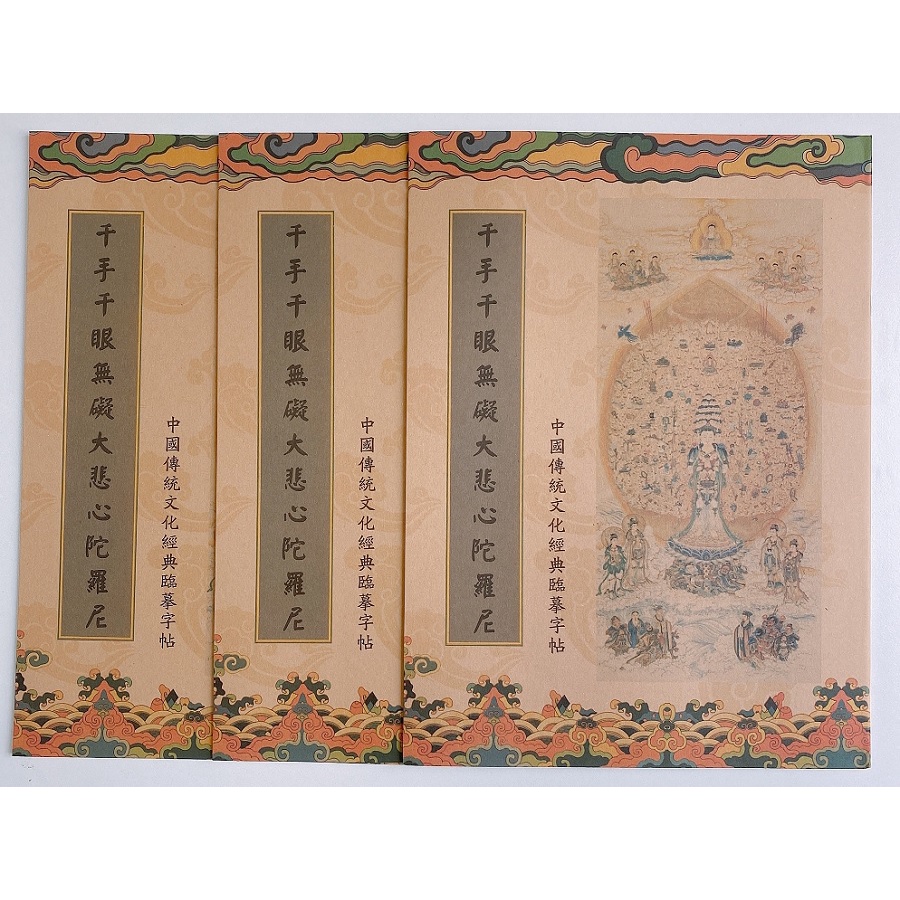 千手千眼無礙大悲心陀羅尼
中國傳統文化經典臨摹字帖
千手千眼無礙大悲心陀羅尼
中國傳統文化經典臨摹字帖
千手千眼無礙大悲心陀羅尼
中國傳統文化經典臨摹字帖